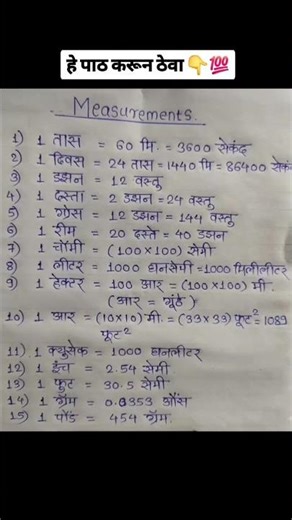 हे पाठ करून ठेवा 👇💯
Measurements.
1) 1 तास = 60 मि. = 3600 सेकंद
2) 1 दिवस = 24 तास = 1440 मि = 86400 सेकं
3) 1 डझन = 12 वस्तु
4) 1 दस्ता = 2 डझन = 24 वस्तु
5) 1 ग्रोस = 12 डझन = 144 वस्तु
6) 1 रीम = 20 दस्ते = 40 डझन
7) 1 चौमी = (100×100) सेमी
8) 1 लीटर = 1000 घनसेमी = 1000 मिलीलीटर
9) 1 हेक्टर = 100 आर = (100×100) मी.
(आर = गुंठे)
10) 1 आर = (10×10) मी. = (33×33) फूट² = 1089
फूट²
11) 1 क्युसेक = 1000 घनलीटर
12) 1 इंच = 2.54 सेमी
13) 1 फुट = 30.5 सेमी
14) 1 ग्रॅम = 0.0353 औंस
15) 1 पौंड = 454 ग्रॅम.